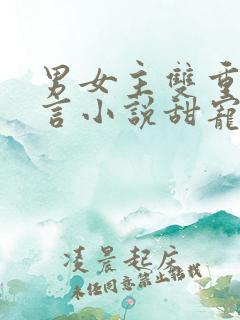 男女主雙重
言小說甜寵
凌晨起床
未經同意禁止轉載